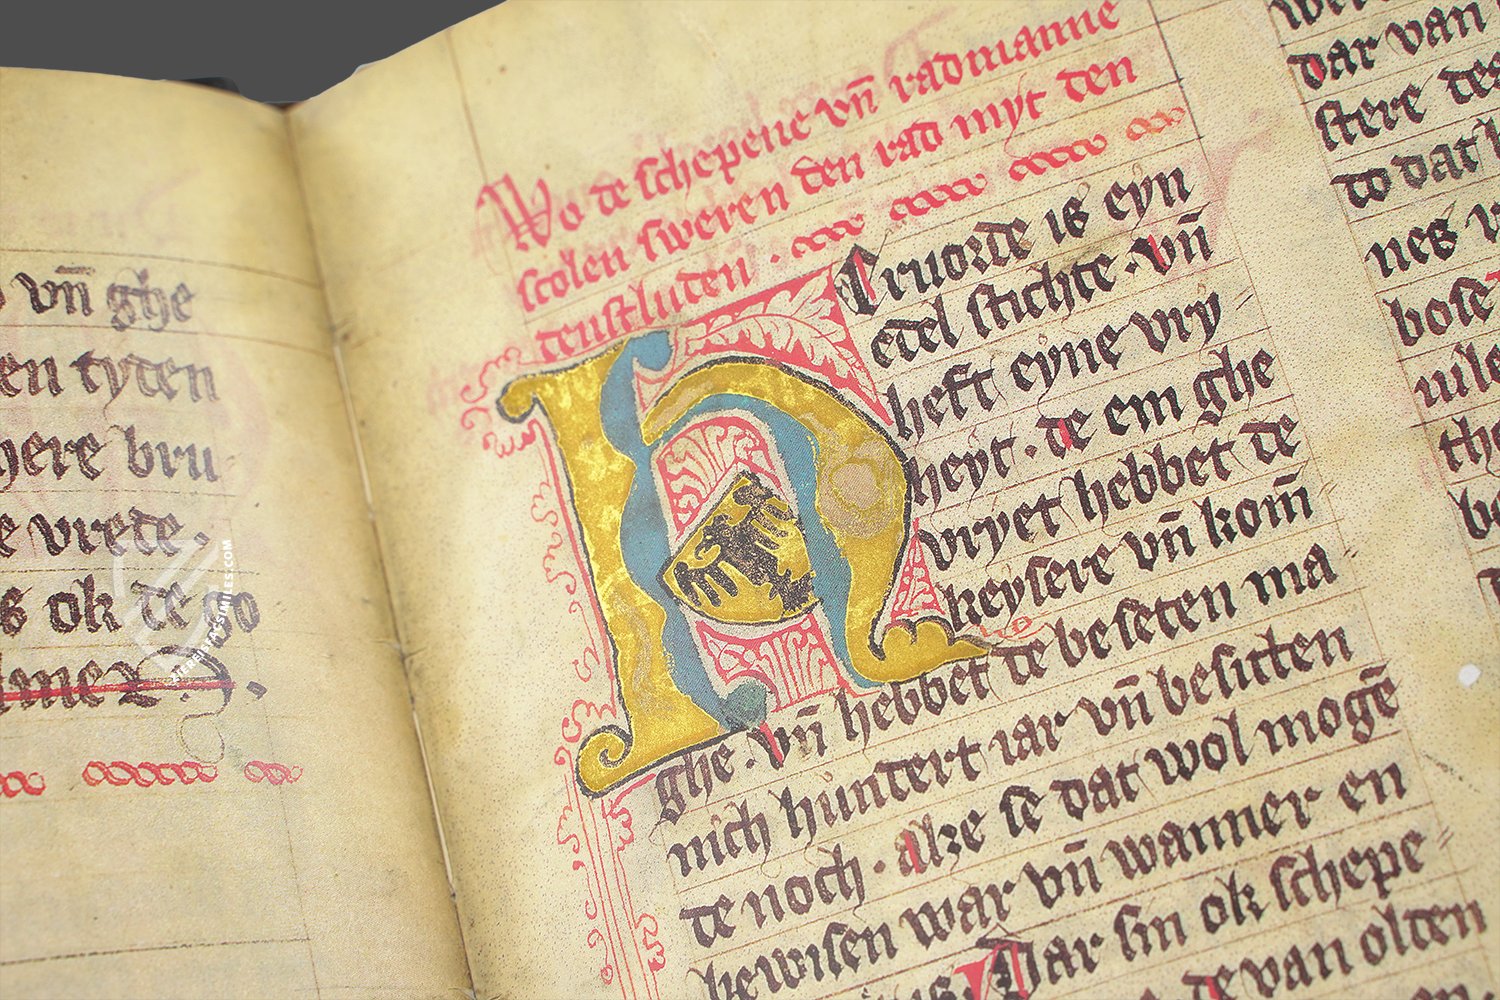 vn̄ ghe
en tyden
here bru
e vrede.
s ok de go
Wo de schepene vn̄ radmanne
scolen sweren den rad myt den
denstluden.
HEruorde is eyn
edel stichte. vn̄
heft eyne vry
heyt. de em ghe
vryet hebbet de
keysere vn̄ kom̄
ghe. vn̄ hebbet de beseten ma
nich hundert iar vn̄ besitten
de noch. alze se dat wol mogē
bewisen war vn̄ wanner en
Dar sin ok schepe
de van olden
dar van
stere des
to dat
nes
bose
uile
VERLISEARSIMILES.COM